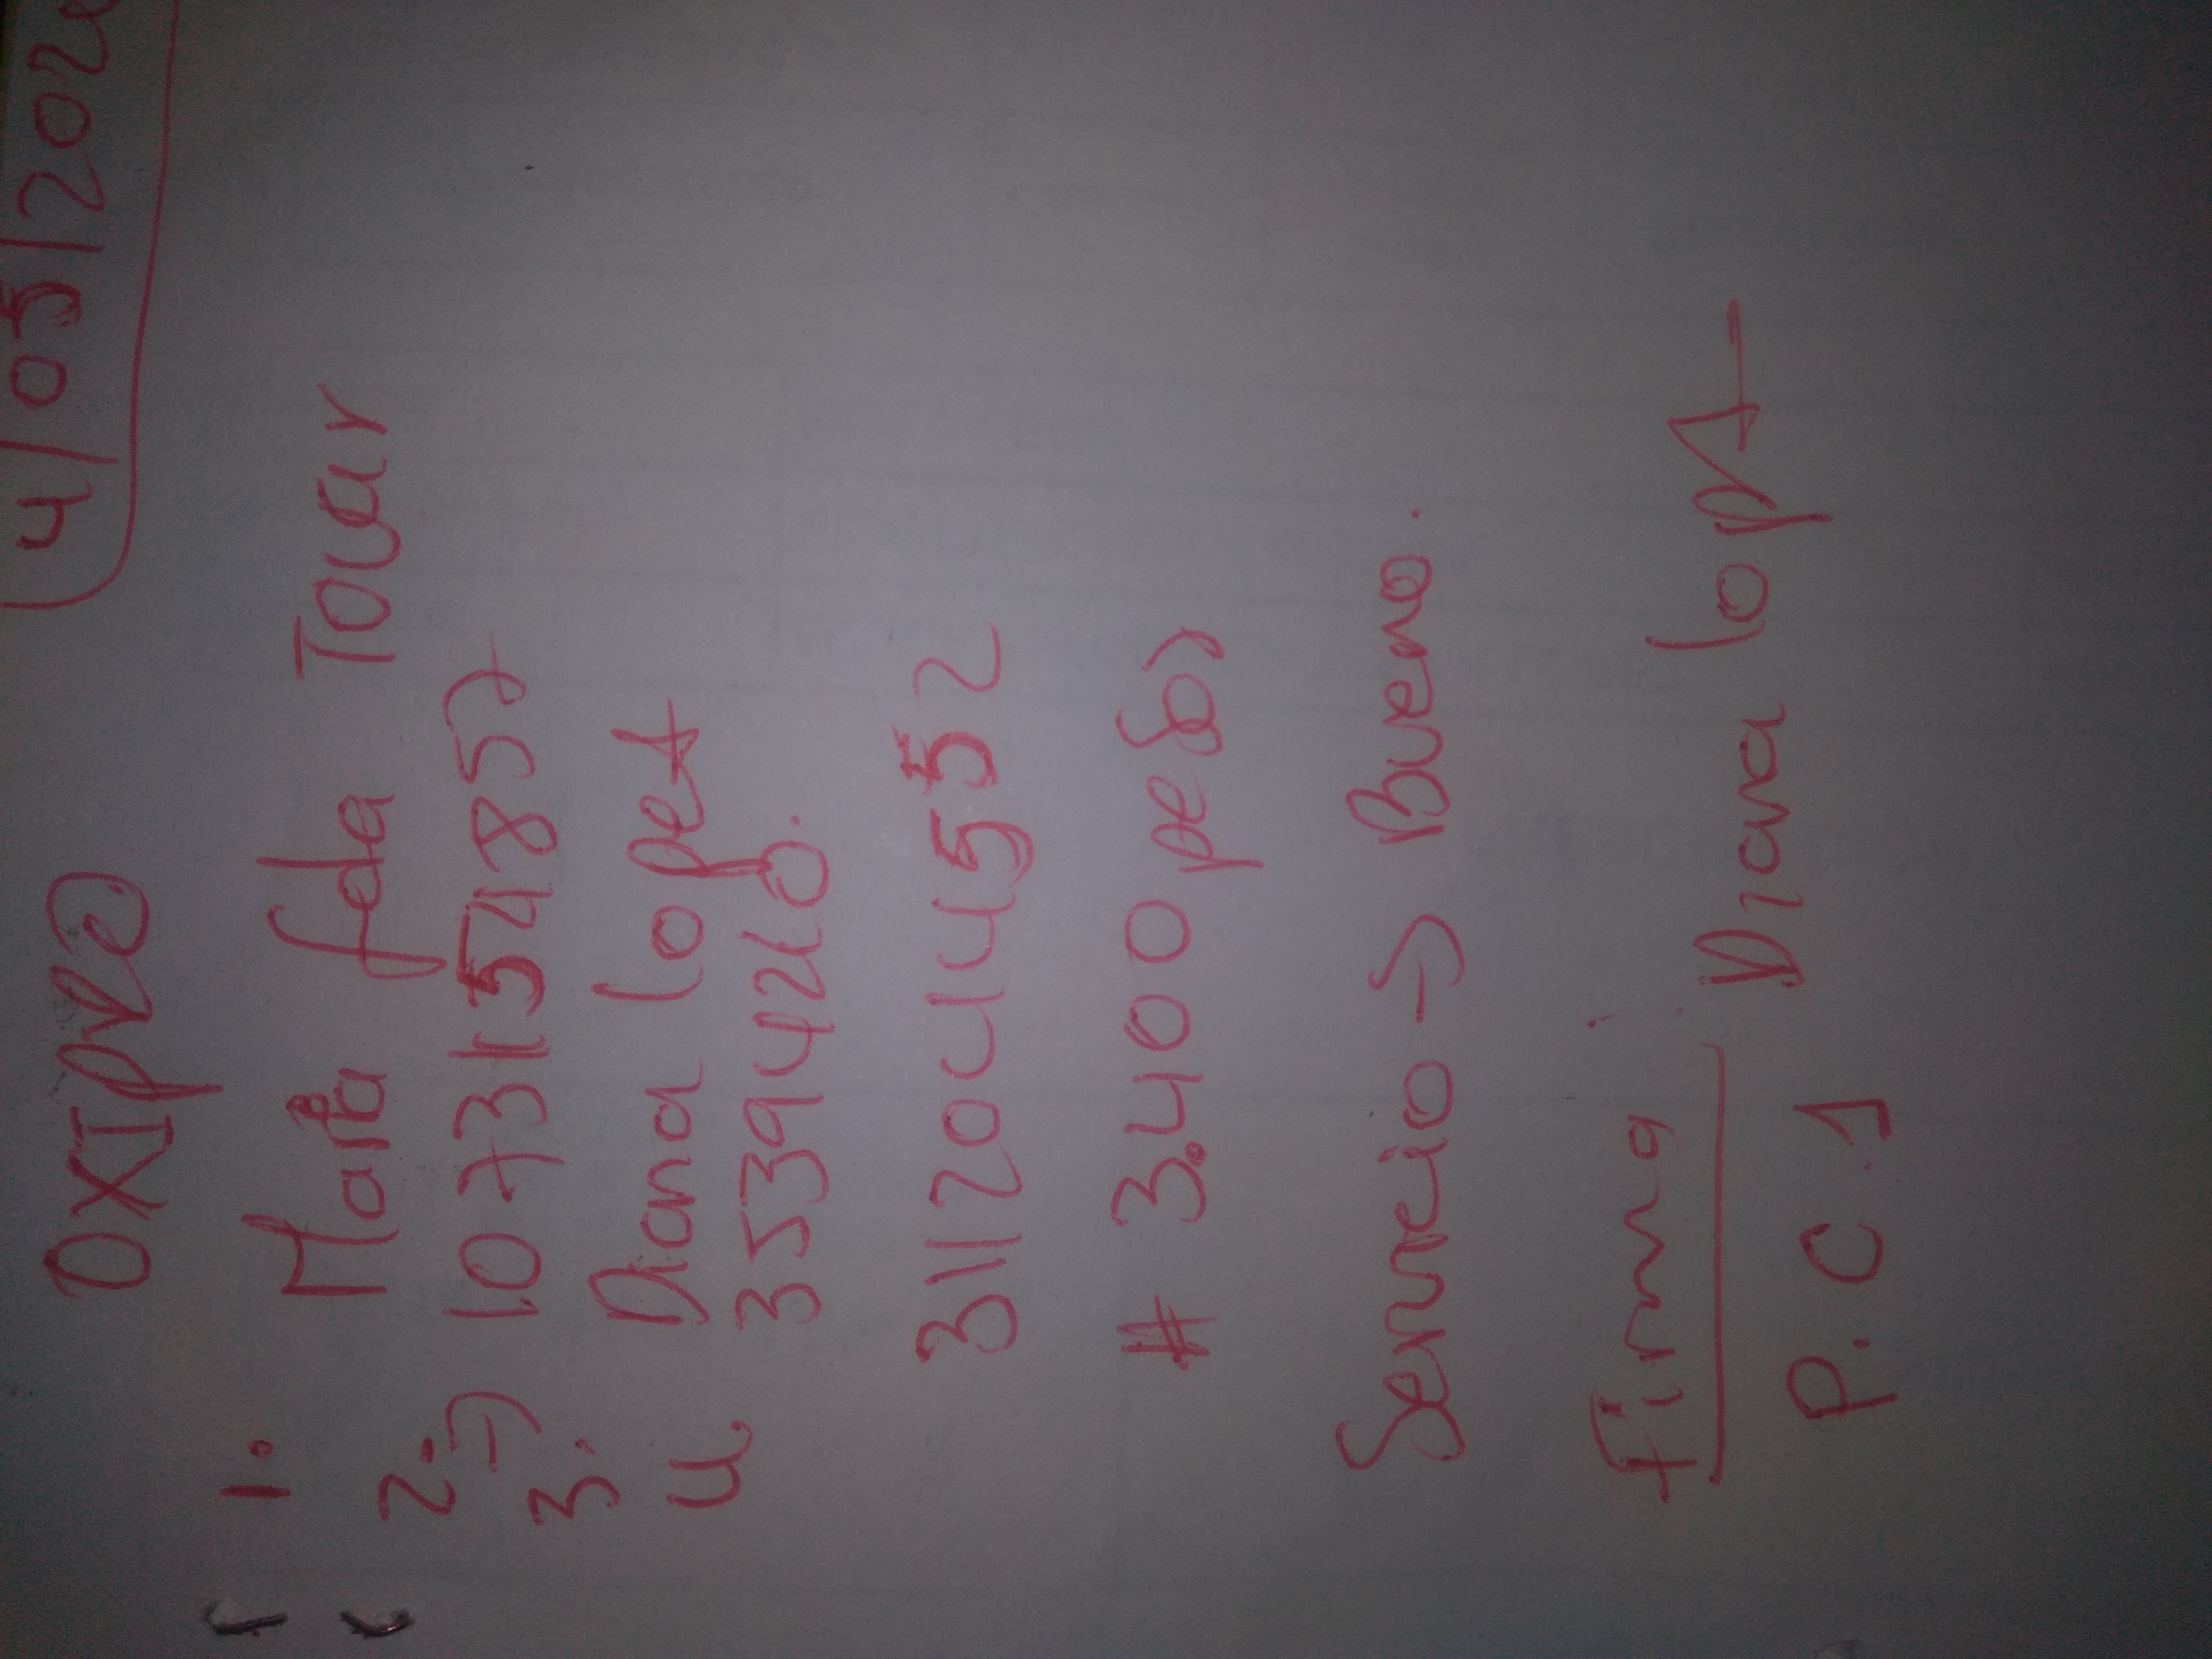 4/05/202
OXIpro
1. Maria fda Tovar
2. → 1073154857
3. Diana lopez
4 35394260.
3112044552
# 3.400 pesos
Servicio → Bueno.
Firma : Diana lopz
P.C.1